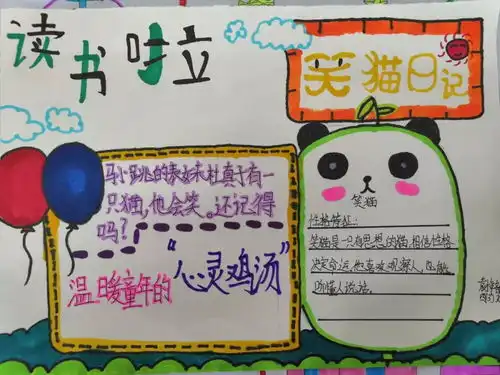 读书时位
笑猫日记
马小跳的表妹杜真子有一
只猫,他会笑。还记得
吗?
温暖童年的
“心灵鸡汤”
笑猫
性格特征:
笑猫是一只有思想的猫,相信性格
决定命运,他喜欢观察人,也能
听懂人说话。